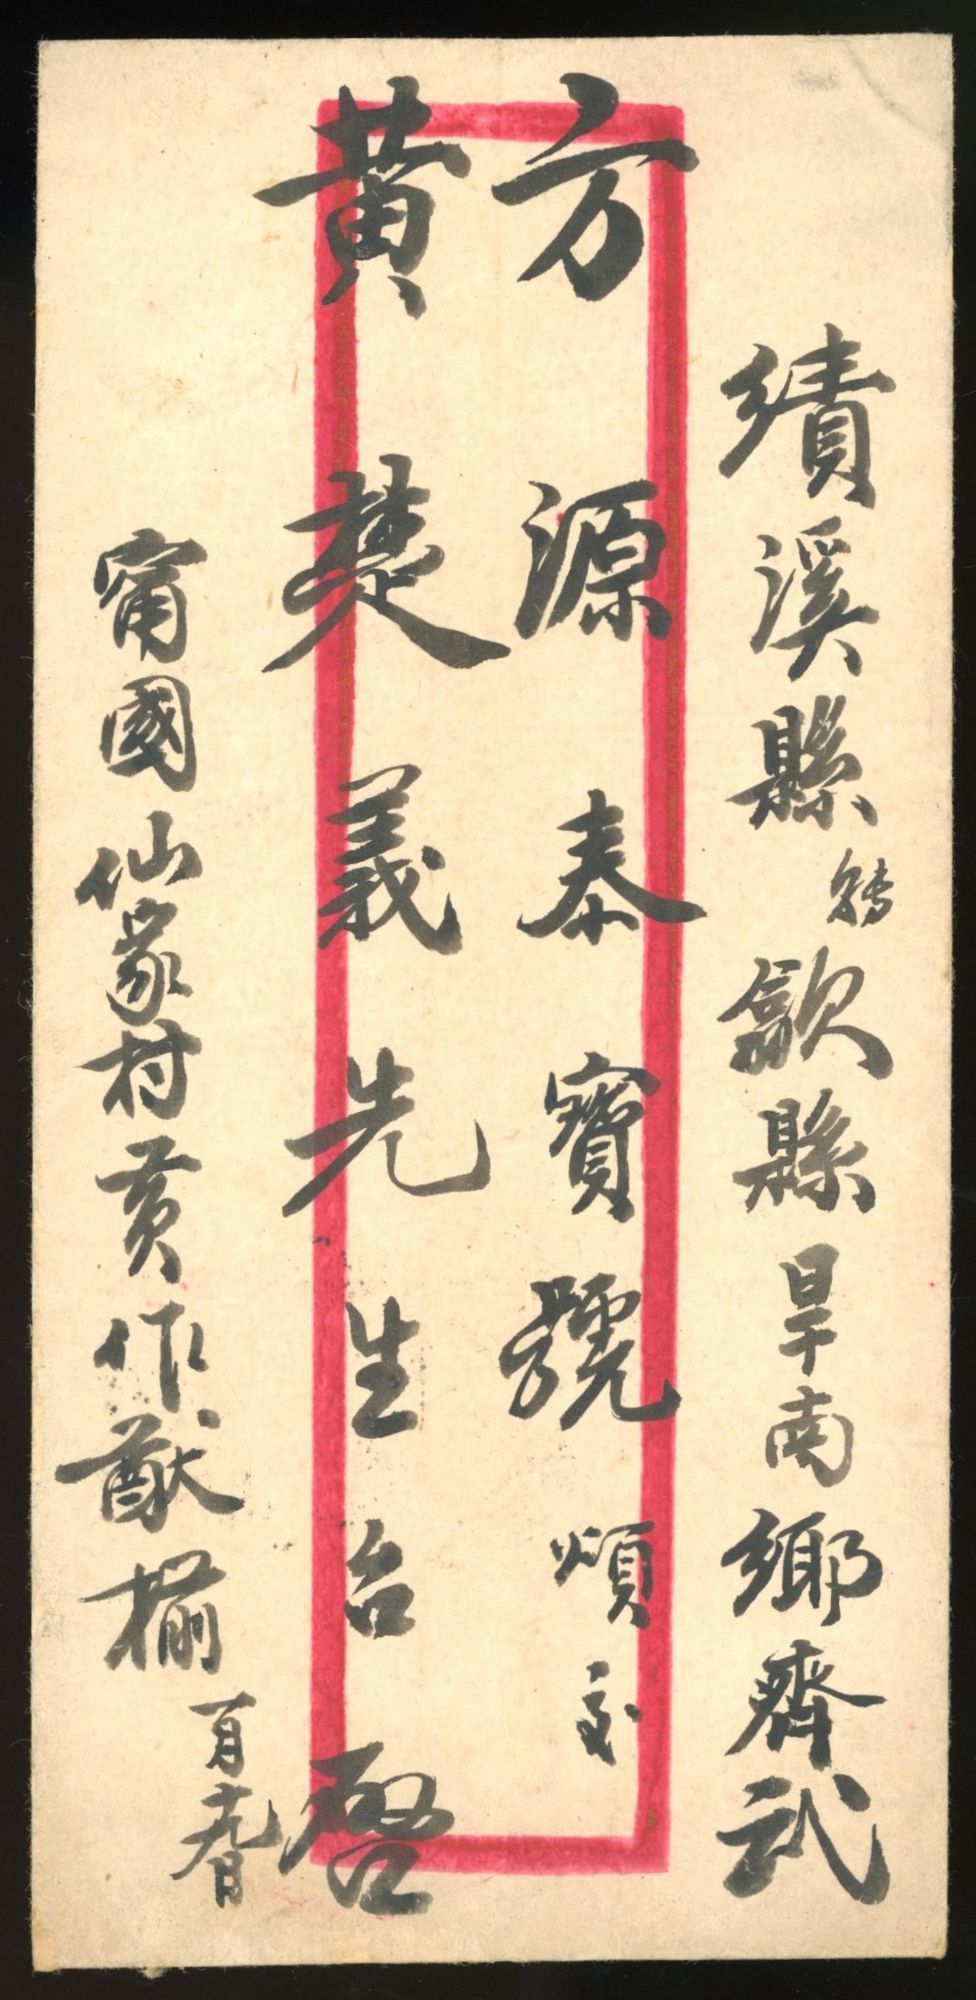 績溪縣轉歙縣旱南鄉齊武
方源泰寶號煩交
黃焚義先生台啓
甯國仙家村黃作猷槭
一月十九日